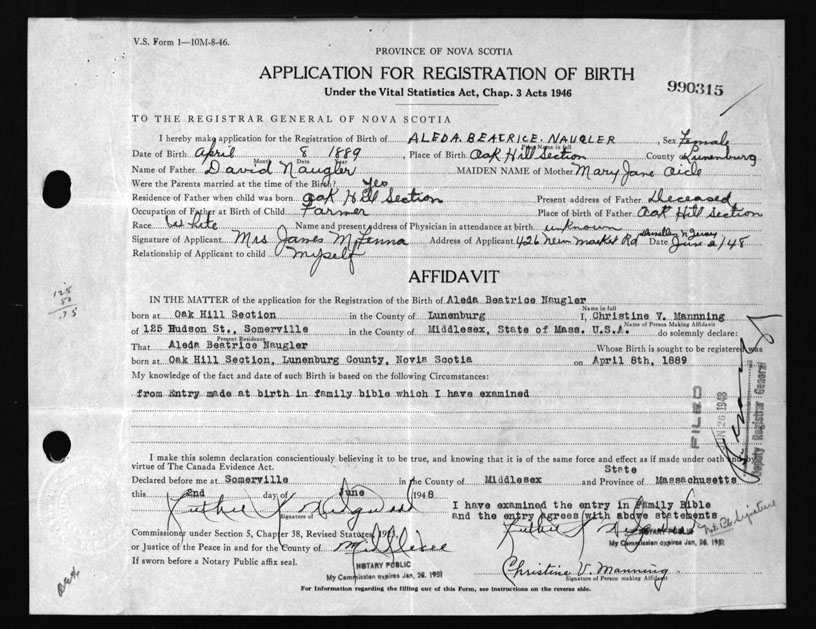 V.S. Form 1—10M-8-46.
PROVINCE OF NOVA SCOTIA
APPLICATION FOR REGISTRATION OF BIRTH
Under the Vital Statistics Act, Chap. 3 Acts 1946
990315
TO THE REGISTRAR GENERAL OF NOVA SCOTIA
I hereby make application for the Registration of Birth of ALEDA. BEATRICE. NAUGLER, Sex Female
Print Name in full
Date of Birth April 8 1889, Place of Birth Oak Hill Section County Lunenburg
Month Date Year
Name of Father David Naugler MAIDEN NAME of Mother Mary Jane
Were the Parents married at the time of the Birth? Yes
Residence of Father when child was born Oak Hill Section Present address of Father Deceased
Occupation of Father at Birth of Child Farmer Place of birth of Father Oak Hill Section
Race White Name and present address of Physician in attendance at birth unknown
Signature of Applicant Mrs James Address of Applicant 426 New Market Rd Date June 2/48
Relationship of Applicant to child myself
AFFIDAVIT
125
50
.75
IN THE MATTER of the application for the Registration of the Birth of Aleda Beatrice Naugler
Name in full
born at Oak Hill Section in the County of Lunenburg I, Christine V. Mannning
Name of Person Making Affidavit
of 125 Hudson St., Somerville in the County of Middlesex, State of Mass. U.S.A. do solemnly declare:
Present Residence
That Aleda Beatrice Naugler Whose Birth is sought to be registered was
born at Oak Hill Section, Lunenburg County, Novia Scotia on April 8th, 1889
My knowledge of the fact and date of such Birth is based on the following Circumstances:
from Entry made at birth in family bible which I have examined
FILED
Deputy Registrar General
I make this solemn declaration conscientiously believing it to be true, and knowing that it is of the same force and effect as if made under oath and by
virtue of The Canada Evidence Act.
State
Declared before me at Somerville in the County of Middlesex and Province of Massachusetts
this 2nd day of June 1948
I have examined the entry in Family Bible
and the entry agrees with above statements
Signature of
Commissioner under Section 5, Chapter 38, Revised Statutes, 1923,
or Justice of the Peace in and for the County of Middlesex
If sworn before a Notary Public affix seal.
NOTARY PUBLIC
My Commission expires Jan, 26. 1951
NOTARY PUBLIC
My Commission expires Jan, 26. 1951
Christine V. Manning.
Signature of Person making Affidavit
For Information regarding the filling out of this Form, see instructions on the reverse side.